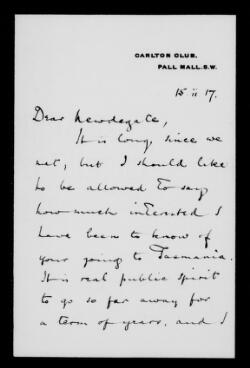 CARLTON CLUB,
PALL MALL. S.W.
15 ii 17.
Dear Newdegate,
It is long, since we
met, but I should like
to be allowed to say
how much interested I
have been to know of
your going to Tasmania.
It is real public spirit
to go so far away for
a term of years, and I